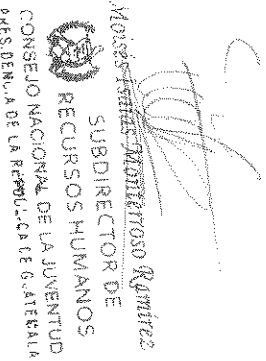 Moisés Monterroso Ramírez
SUBDIRECTOR DE
RECURSOS HUMANOS
CONSEJO NACIONAL DE LA JUVENTUD
PRESIDENCIA DE LA REPÚBLICA DE GUATEMALA